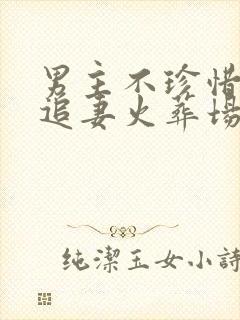 男主不珍惜
追妻火葬场
纯潔玉女小詩